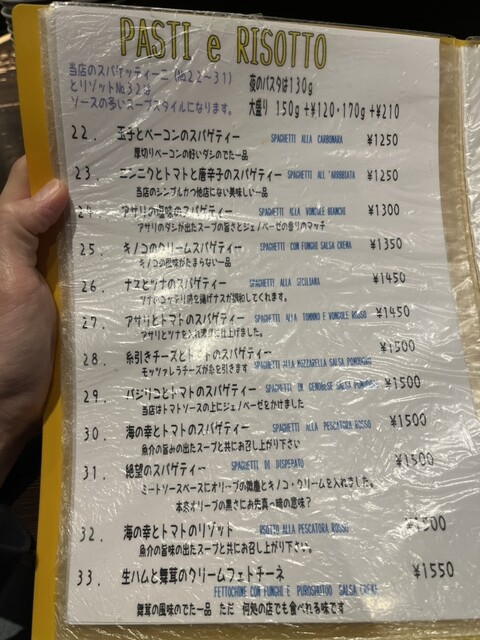 PASTI e RISOTTO
当店のスパゲッティーニ (№22~31)
とリゾット№32は
ソースの多いスープスタイルになります。
夜のパスタは130g
大盛り 150g +¥120・170g +¥210
22. 玉子とベーコンのスパゲティー SPAGHETTI ALLA CARBONARA ¥1250
厚切りベーコンの好いダシのでた一品
23. ニンニクとトマトと唐辛子のスパゲティー SPAGHETTI ALL'ARRBBIATA ¥1250
当店のシンプルかつ他店にない美味しい一品
24. アサリの塩味のスパゲティー SPAGHETTI ALLA VONGOLE BIANCHI ¥1300
アサリのダシが出たスープの旨さとジェノベーゼの香りのマッチ
25. キノコのクリームスパゲティー SPAGHETTI CON FUNGHI SALSA CREMA ¥1350
キノコの風味がたまらない一品
26. ナスとツナのスパゲティー SPAGHETTI ALLA SICILIANA ¥1450
ツナのコッテリ感を揚げナスが調和してくれます。
27. アサリとトマトのスパゲティー SPAGHETTI ALLA TONNNO E VONGOLE ROSSO ¥1450
アサリとツナを入れ濃厚に仕上げました。
28. 糸引きチーズとトマトのスパゲティー SPAGHETTI ALLA MOZZARELLA SALSA POMODORO ¥1500
モッツァレラチーズが糸を引きます
29. バジリコとトマトのスパゲティー SPAGHETTI CON GENOBESE SALSA POMODORO ¥1500
当店はトマトソースの上にジェノベーゼをかけました
30. 海の幸とトマトのスパゲティー SPAGHETTI ALLA PESCATORA ROSSO ¥1500
魚介の旨みの出たスープと共にお召し上がり下さい
31. 絶望のスパゲティー SPAGHETTI DI DISPERATO ¥1500
ミートソースベースにオリーブの微塵とキノコ・クリームを入れました。
本来オリーブの黒さにお先真っ暗の意味?
32. 海の幸とトマトのリゾット RISOTTO ALLA PESCATORA ROSSO
魚介の旨味の出たスープと共にお召し上がり下さい。
33. 生ハムと舞茸のクリームフェトチーネ ¥1550
FETTOCHINE CON FUNGHI E PUROSHIUTOO SALSA CREME
舞茸の風味のでた一品 ただ 何処の店でも食べれる味です